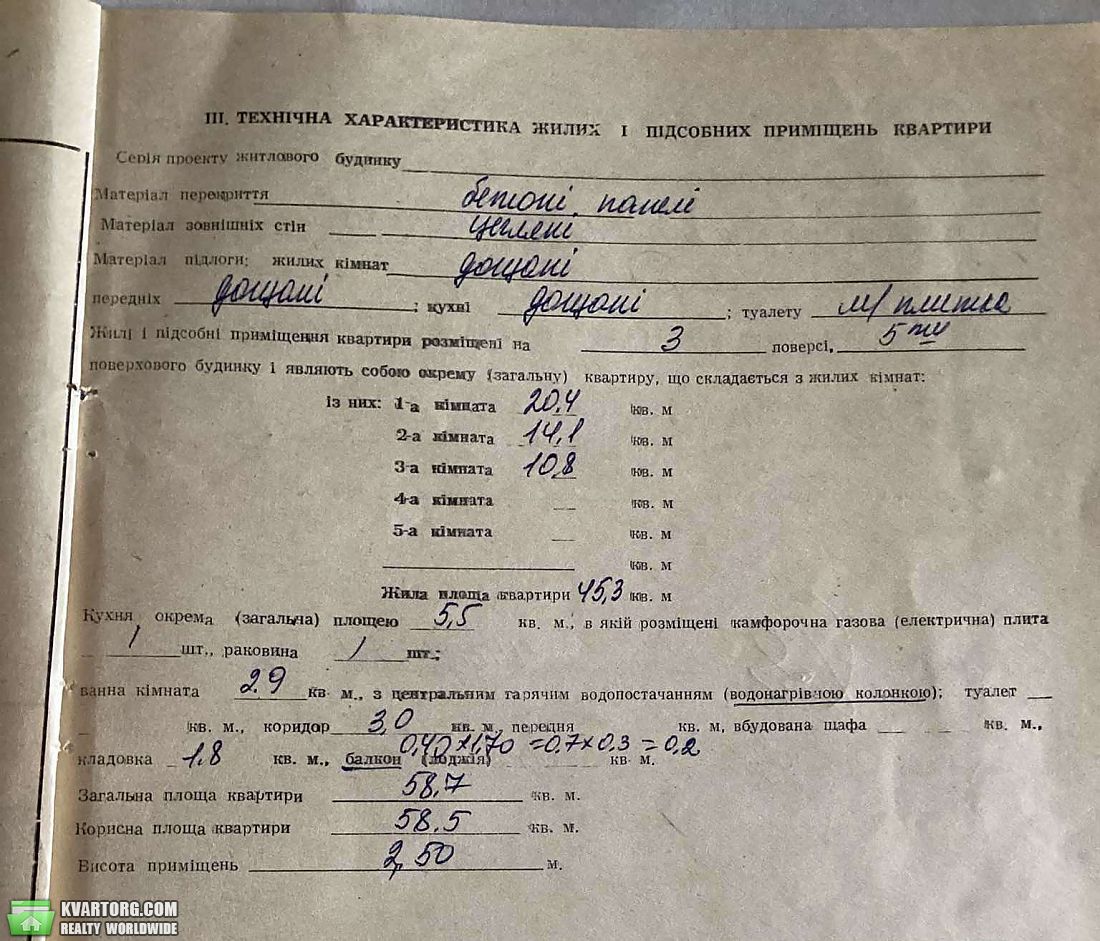 III. ТЕХНІЧНА ХАРАКТЕРИСТИКА ЖИЛИХ І ПІДСОБНИХ ПРИМІЩЕНЬ КВАРТИРИ
Серія проекту житлового будинку
Матеріал перекриття бетоні. панелі
Матеріал зовнішніх стін цегляні
Матеріал підлоги: жилих кімнат дощані
передніх дощані; кухні дощані; туалету м/плитка
Жилі і підсобні приміщення квартири розміщені на 3 поверсі, 5ти
поверхового будинку і являють собою окрему (загальну) квартиру, що складається з жилих кімнат:
із них: 1-а кімната 20,4 кв. м
2-а кімната 14,1 кв. м
3-а кімната 10,8 кв. м
4-а кімната — кв. м
5-а кімната — кв. м
кв. м
Жила площа квартири 45,3 кв. м
Кухня окрема (загальна) площею 5,5 кв. м., в якій розміщені камфорочна газова (електрична) плита
1 шт., раковина 1 шт.;
ванна кімната 2,9 кв. м., з центральним гарячим водопостачанням (водонагрівною колонкою); туалет
кв. м., коридор 3,0 кв. м, передня кв. м, вбудована шафа кв. м.,
0,40 х 1,70 = 0,7 х 0,3 = 0,2
кладовка 1,8 кв. м., балкон (лоджія) кв. м.
Загальна площа квартири 58,7 кв. м.
Корисна площа квартири 58,5 кв. м.
Висота приміщень 2,50 м.
KVARTORG.COM
REALTY WORLDWIDE